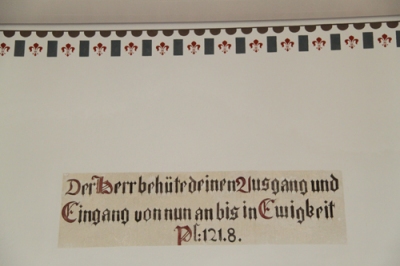 Der Herr behüte deinen Ausgang und
Eingang von nun an bis in Ewigkeit
Ps: 121. 8.